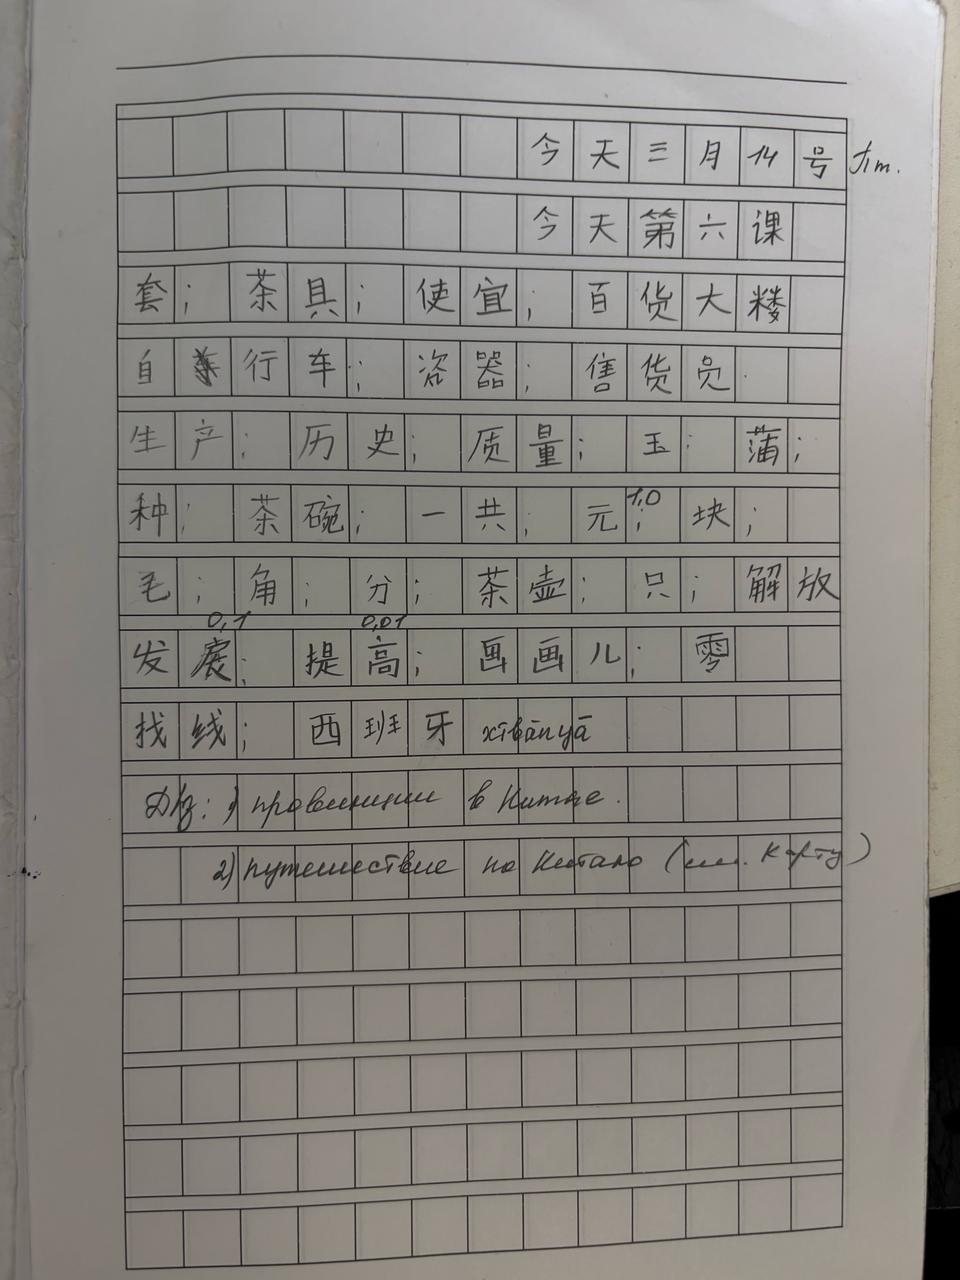 今天三月14号 пт.
今天第六课
套; 茶具; 使宜; 百货大楼
自行车; 瓷器; 售货员
生产; 历史; 质量; 玉; 蒲;
种; 茶碗; 一共; 元; 1,0 块;
毛; 角; 分; 茶壶; 只; 解放
0,1 0,01
发展; 提高; 画画儿; 零
找线; 西班牙 xībānyá
Д/з: 1) провинции в Китае.
2) путешествие по Китаю (см. карту)